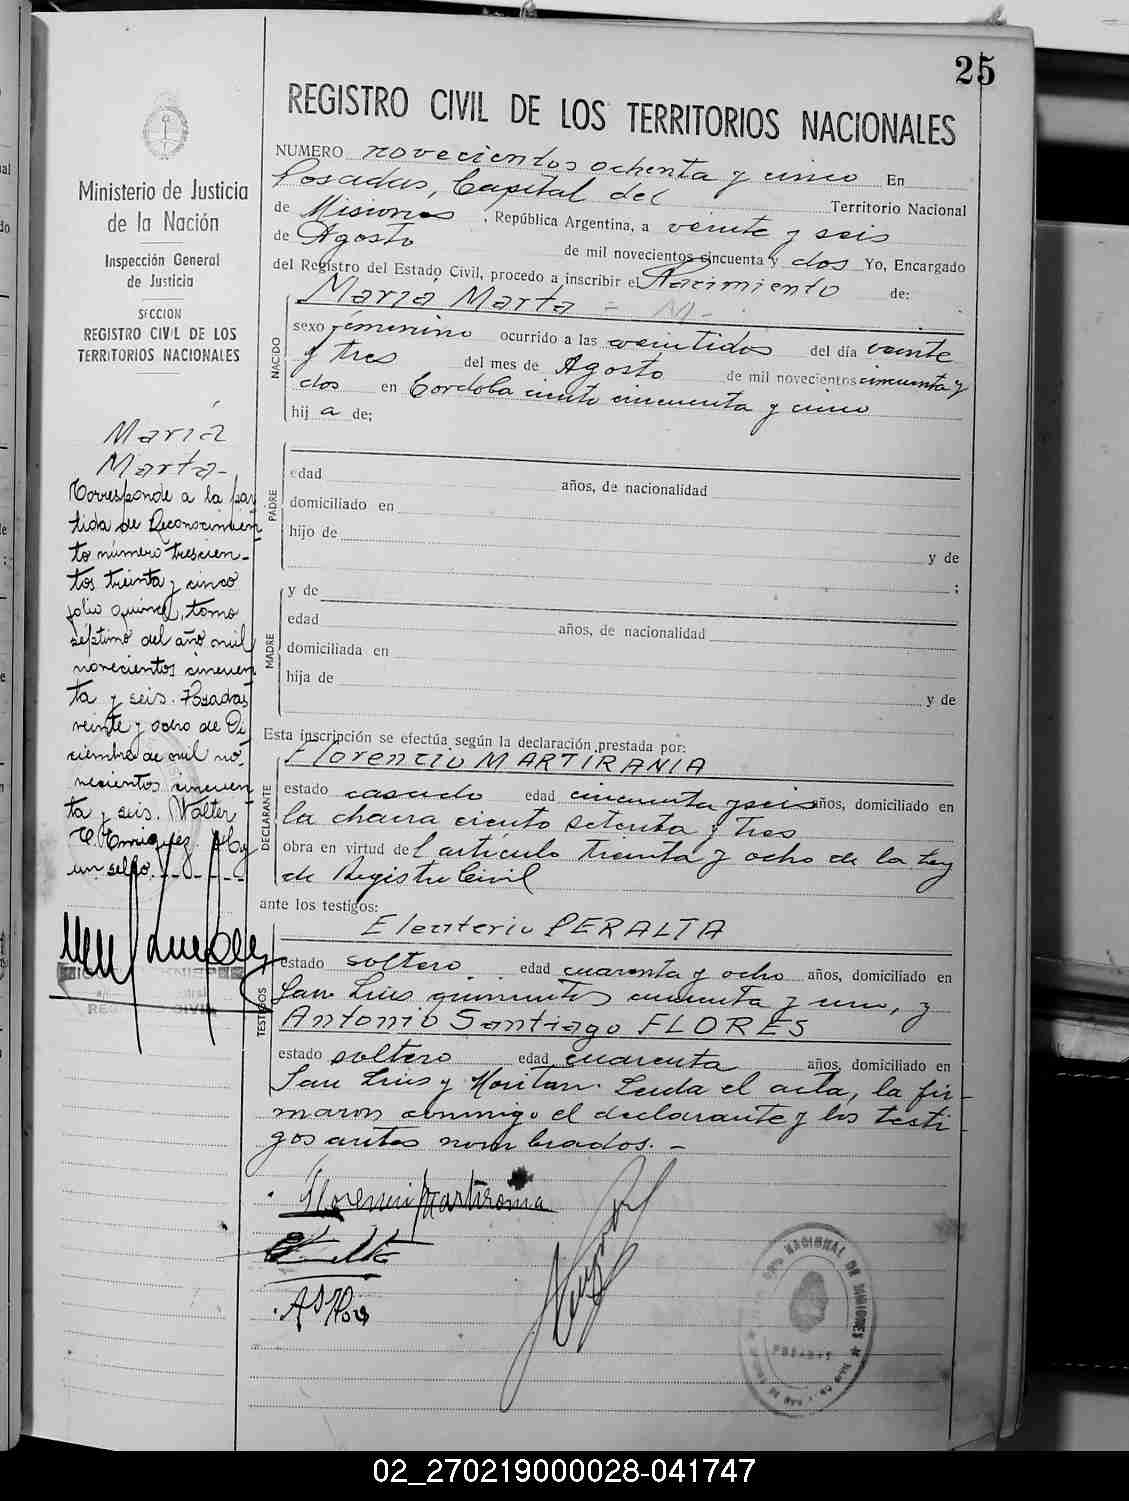 25
REGISTRO CIVIL DE LOS TERRITORIOS NACIONALES
NUMERO novecientos ochenta y cinco En
Posadas, Capital del Territorio Nacional
de Misiones, República Argentina, a veinte y seis
de Agosto de mil novecientos cincuenta y dos Yo, Encargado
del Registro del Estado Civil, procedo a inscribir el Nacimiento de:
NACIDO
María Marta =
sexo femenino ocurrido a las veintidos del día veinte
y tres del mes de Agosto de mil novecientos cincuenta y
dos en Cordoba ciento cincuenta y cinco
hij a de;
PADRE
edad años, de nacionalidad
domiciliado en
hijo de
y de
;
MADRE
y de
edad años, de nacionalidad
domiciliada en
hija de
y de
Esta inscripción se efectúa según la declaración prestada por:
DECLARANTE
Florencio MARTIRANIA
estado casado edad cincuenta y seis años, domiciliado en
la chacra ciento setenta y tres
obra en virtud del artículo treinta y ocho de la Ley
de Registro Civil
ante los testigos:
TESTIGOS
Eleuterio PERALTA
estado soltero edad cuarenta y ocho años, domiciliado en
San Luis quinientos cincuenta y uno, y
Antonio Santiago FLORES
estado soltero edad cuarenta años, domiciliado en
San Luis y Moritan. Leida el acta, la fir-
maron conmigo el declarante y los testi-
gos antes nombrados. -
Florencio Martirania
Ministerio de Justicia
de la Nación
Inspección General
de Justicia
SECCION
REGISTRO CIVIL DE LOS
TERRITORIOS NACIONALES
María
Marta-
Corresponde a la par
tida de Reconocimien
to número trescien-
tos treinta y cinco
folio quince, tomo
séptimo del año mil
novecientos cincuen
ta y seis. Posadas
veinte y ocho de Di
ciembre de mil no-
vecientos cincuen
ta y seis. Walter
E. Enriquez. Hay
un sello.
02_270219000028-041747